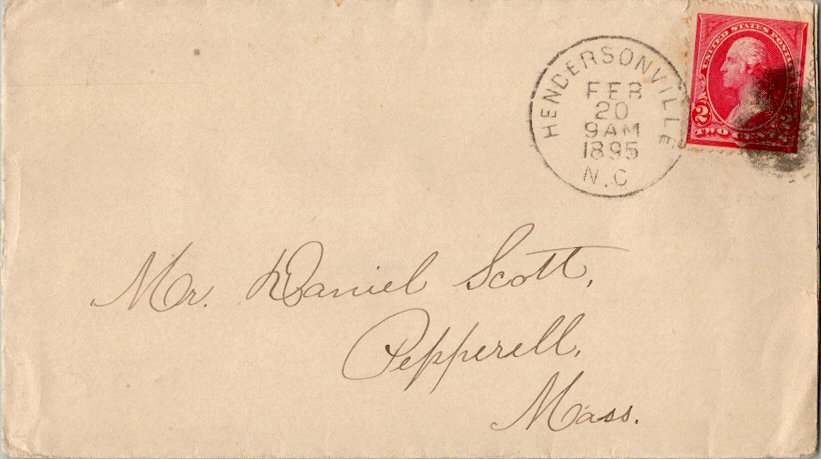 HENDERSONVILLE
FEB
20
9AM
1895
N.C
UNITED STATES POSTAGE
2
TWO CENTS
Mr. Daniel Scott,
Pepperell,
Mass.